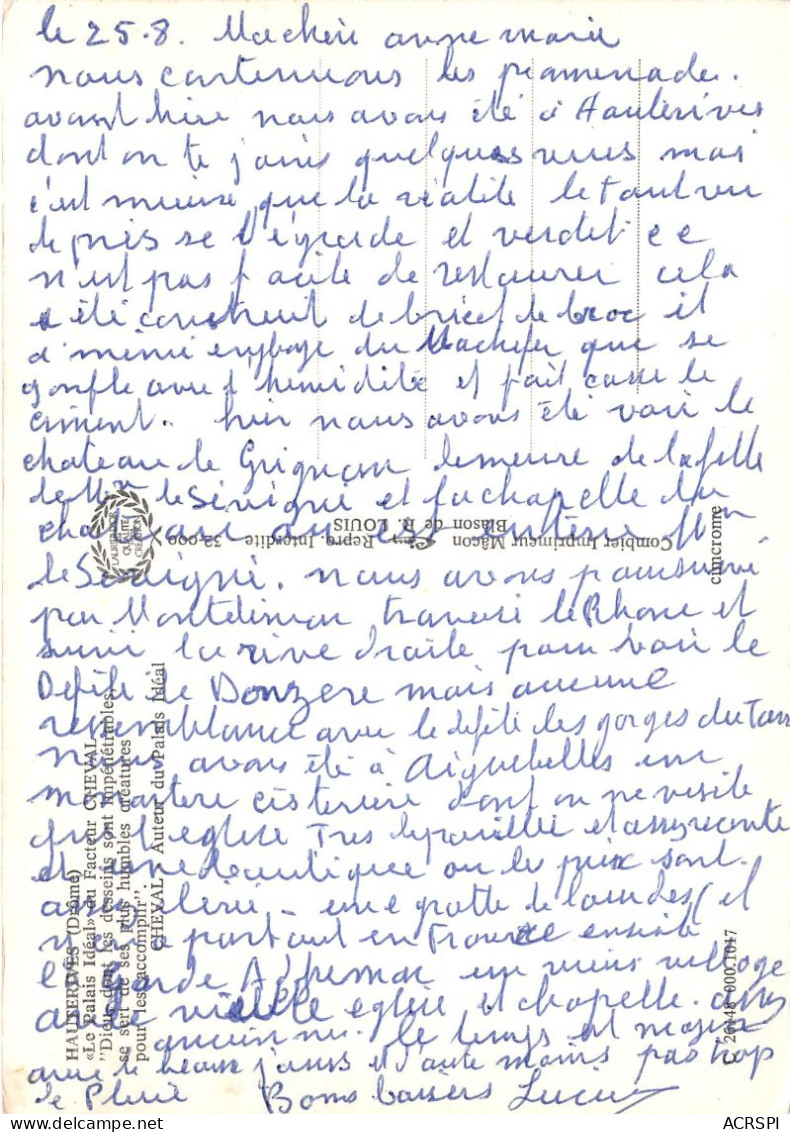 le 25-8. Machéri anne marie
nous continuons les promenades.
avant hier nous avons été à Hauterives
dont on te joins quelques vues mais
c'est mieux que la réalité le tout vu
de près se lézarde et verdet ce
n'est pas facile de restaurer cela
a été construit de bric et de broc et
même du machefer que se
gonfle avec l'humidité et fait casser le
ciment. hier nous avons été voir le
chateau de Grignan demeure de la fille
de Mme de Sévigné et la chapelle du
chateau ou est enterré Mme
de Sévigné. nous avons poursuivi
par Montélimar traversé le Rhone et
suivi la rive droite pour voir le
Défilé de Donzère mais aucune
ressemblance avec le défilé des gorges du Tarn
nous avons été à Aiguebelles un
monastère cistercien dont on ne visite
que l'eglise Tres depouillée et assez récente
et une boutique ou les prix sont
une grotte de Lourdes (il
y en a partout en France ensuite
la Garde Adhémar un vieux village
avec vieille église et chapelle. assez
ancienne. le temps est moyen
avec de beaux jours et d'autre moins pas trop
de Pluie Bons baisers Lucie
Combier Imprimeur Mâcon Repro. Interdite 32.000
Blason de R. LOUIS
cimcrome
HAUTERIVES (Drôme)
«Le Palais Idéal» du Facteur CHEVAL
"Dieu, dont les desseins sont impénétrables,
se sert de ses plus humbles créatures
pour les accomplir".
CHEVAL - Auteur du Palais Idéal
ACRSPI